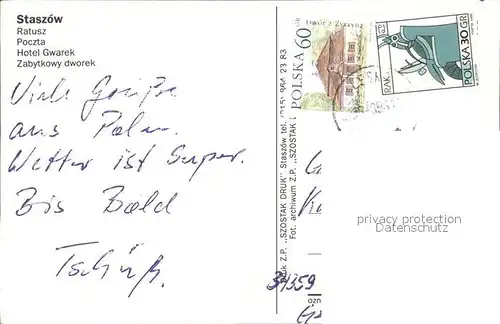 Staszów
Ratusz
Poczta
Hotel Gwarek
Zabytkowy dworek
Viele Grüße
aus Polen.
Wetter ist Super.
Bis Bald
Tschüß.
POLSKA 60 GR
Dwór z Żyrzyna
RAK
POLSKA 30 GR
"SZOSTAK DRUK" Staszów tel. (015) 864 23 83
Fot. archiwum Z.P. "SZOSTAK
34359
privacy protection
Datenschutz